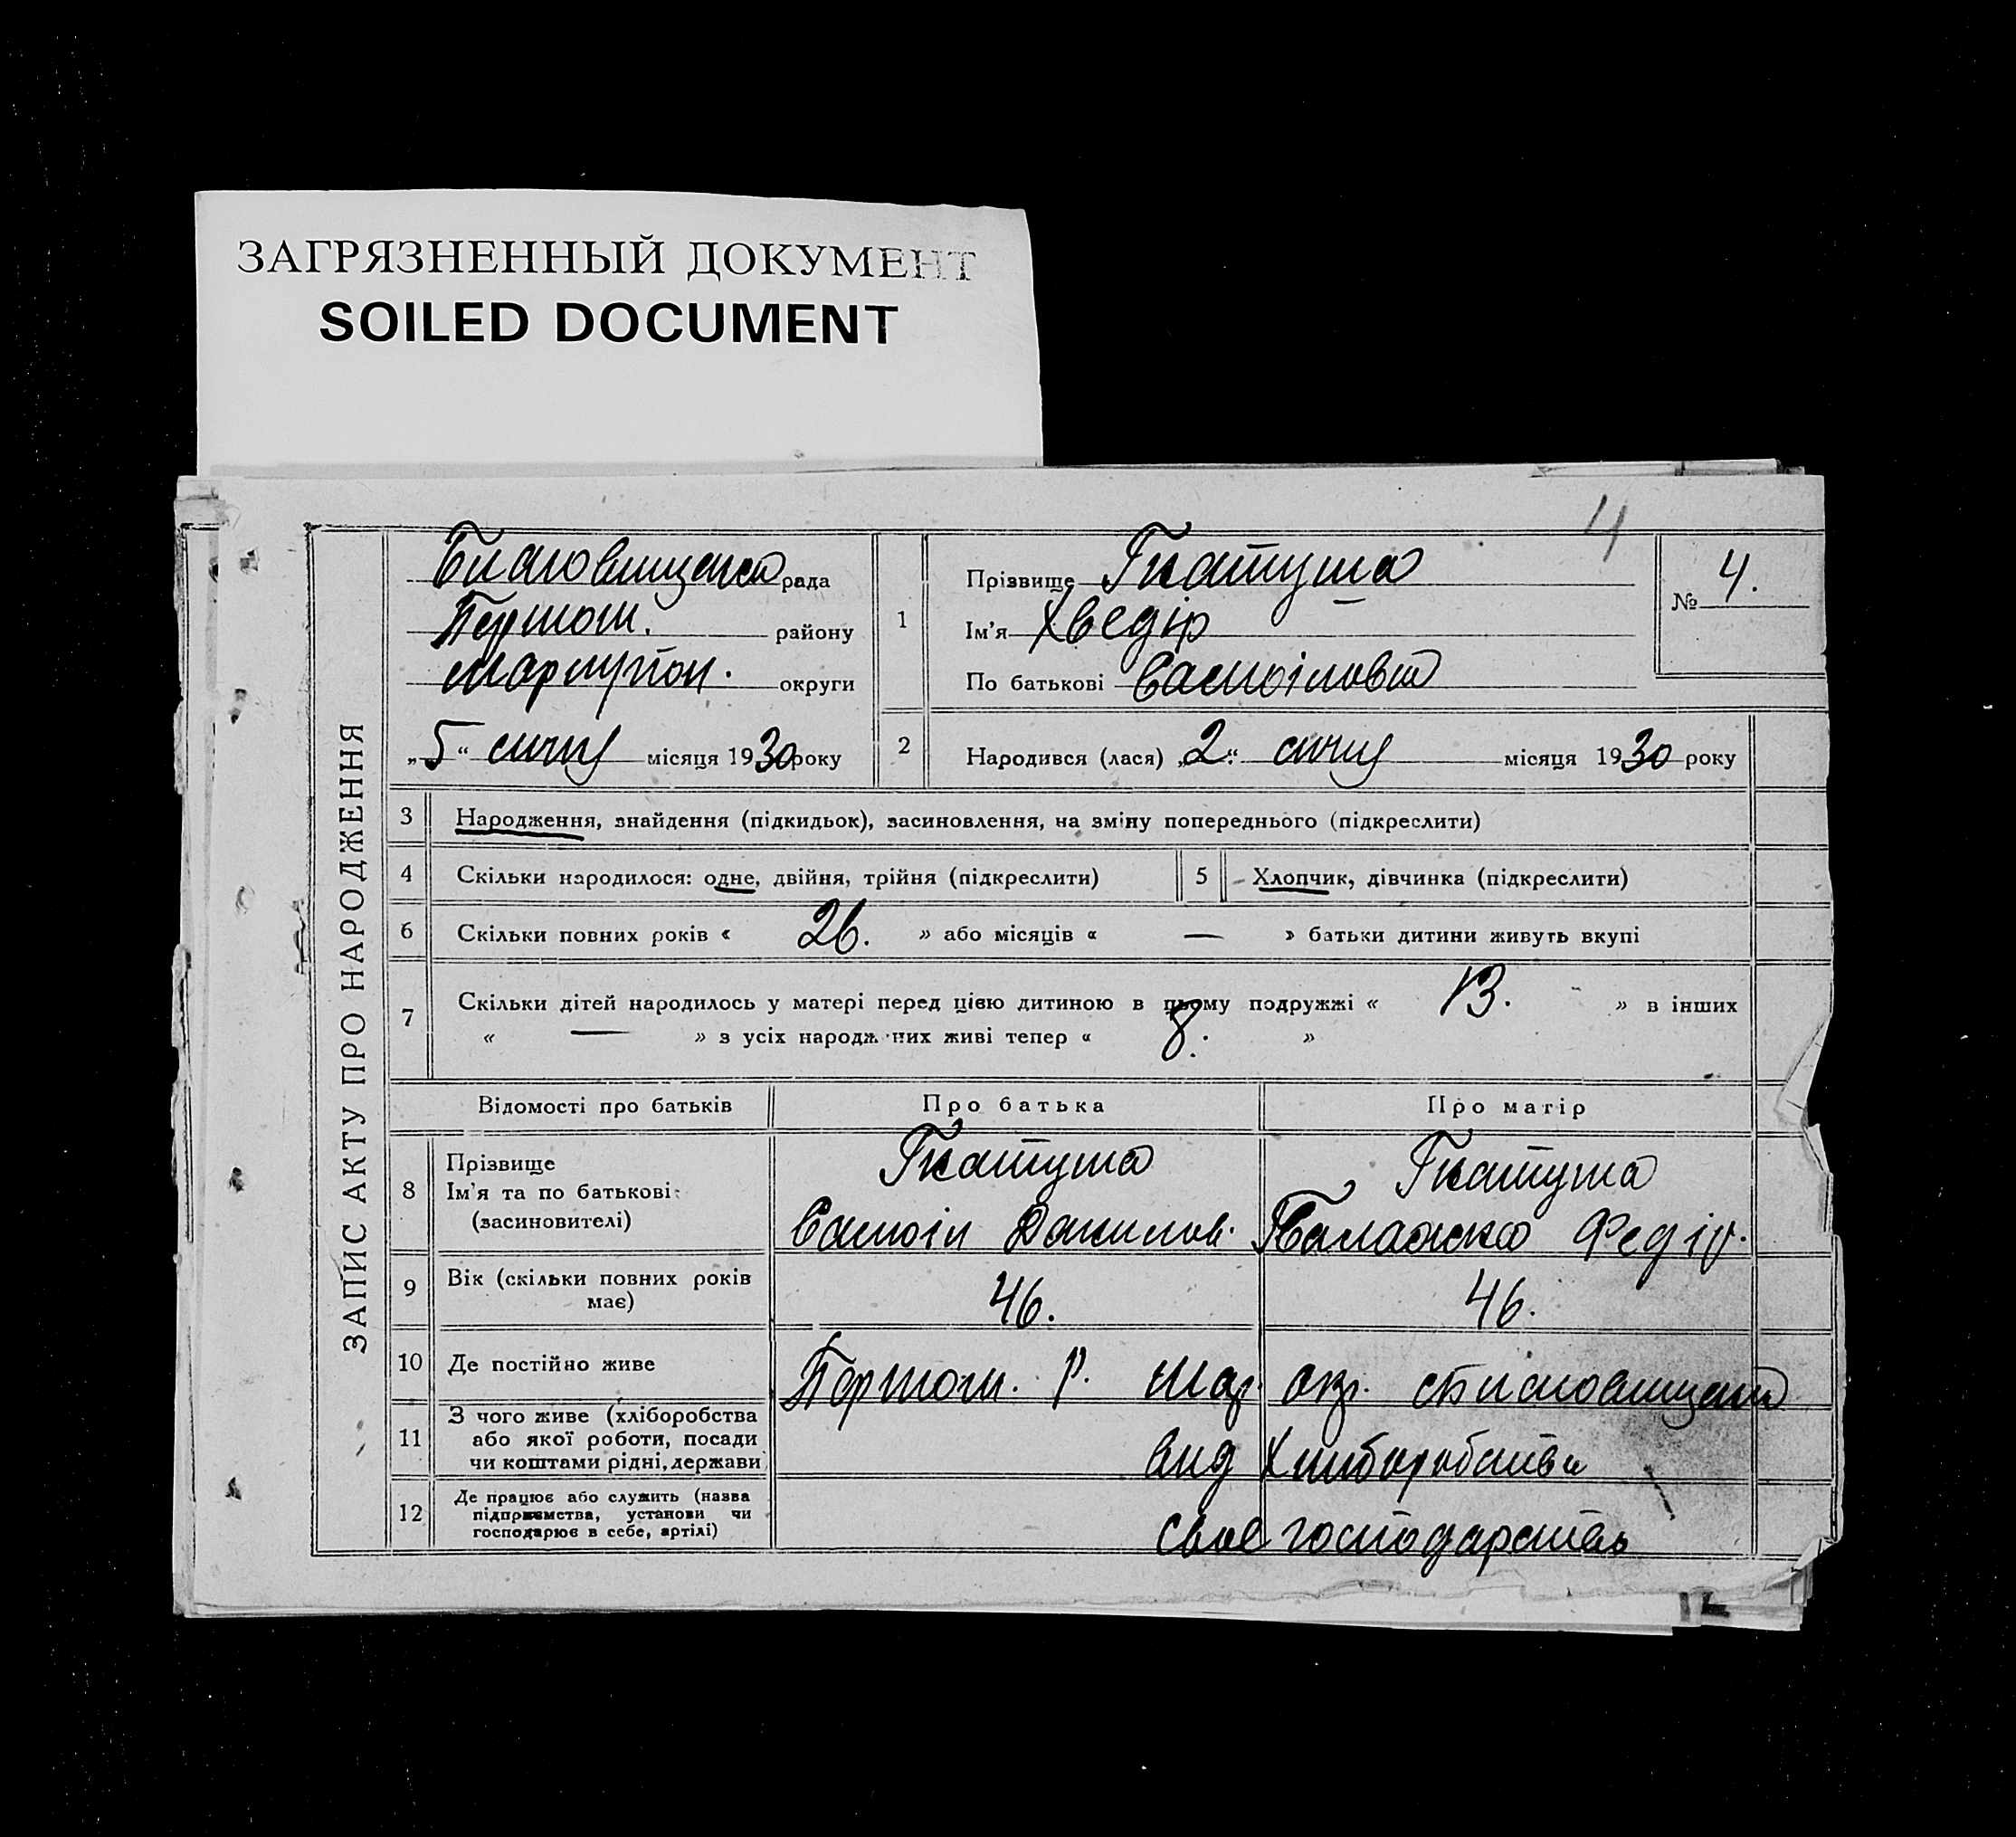 ЗАГРЯЗНЕННЫЙ ДОКУМЕНТ
SOILED DOCUMENT
4
ЗАПИС АКТУ ПРО НАРОДЖЕННЯ
рада
району
Маріупол. округи
„5“ січня місяця 1930 року
1
Прізвище Гнатуша
Ім'я Хведір
По батькові Самоілович
№ 4.
2 Народився (лася) „2“ січня місяця 1930 року
3 Народження, знайдення (підкидьок), засиновлення, на зміну попереднього (підкреслити)
4 Скільки народилося: одне, двійня, трійня (підкреслити)
5 Хлопчик, дівчинка (підкреслити)
6 Скільки повних років « 26. » або місяців « — » батьки дитини живуть вкупі
7 Скільки дітей народилось у матері перед цією дитиною в цьому подружжі « 13. » в інших
« — » з усіх народж них живі тепер « 8. »
Відомості про батьків Про батька Про матір
8 Прізвище Гнатуша Гнатуша
Ім'я та по батькові
(засиновителі) Самоіл Данилов. Палажка Федір.
9 Вік (скільки повних років
має) 46. 46.
10 Де постійно живе Р. Мар. окр.
11 З чого живе (хліборобства
або якої роботи, посади
чи коштами рідні, держави) вид Хлиборобства
12 Де працює або служить (назва
підприємства, установи чи
господарює в себе, артілі) своє господарство